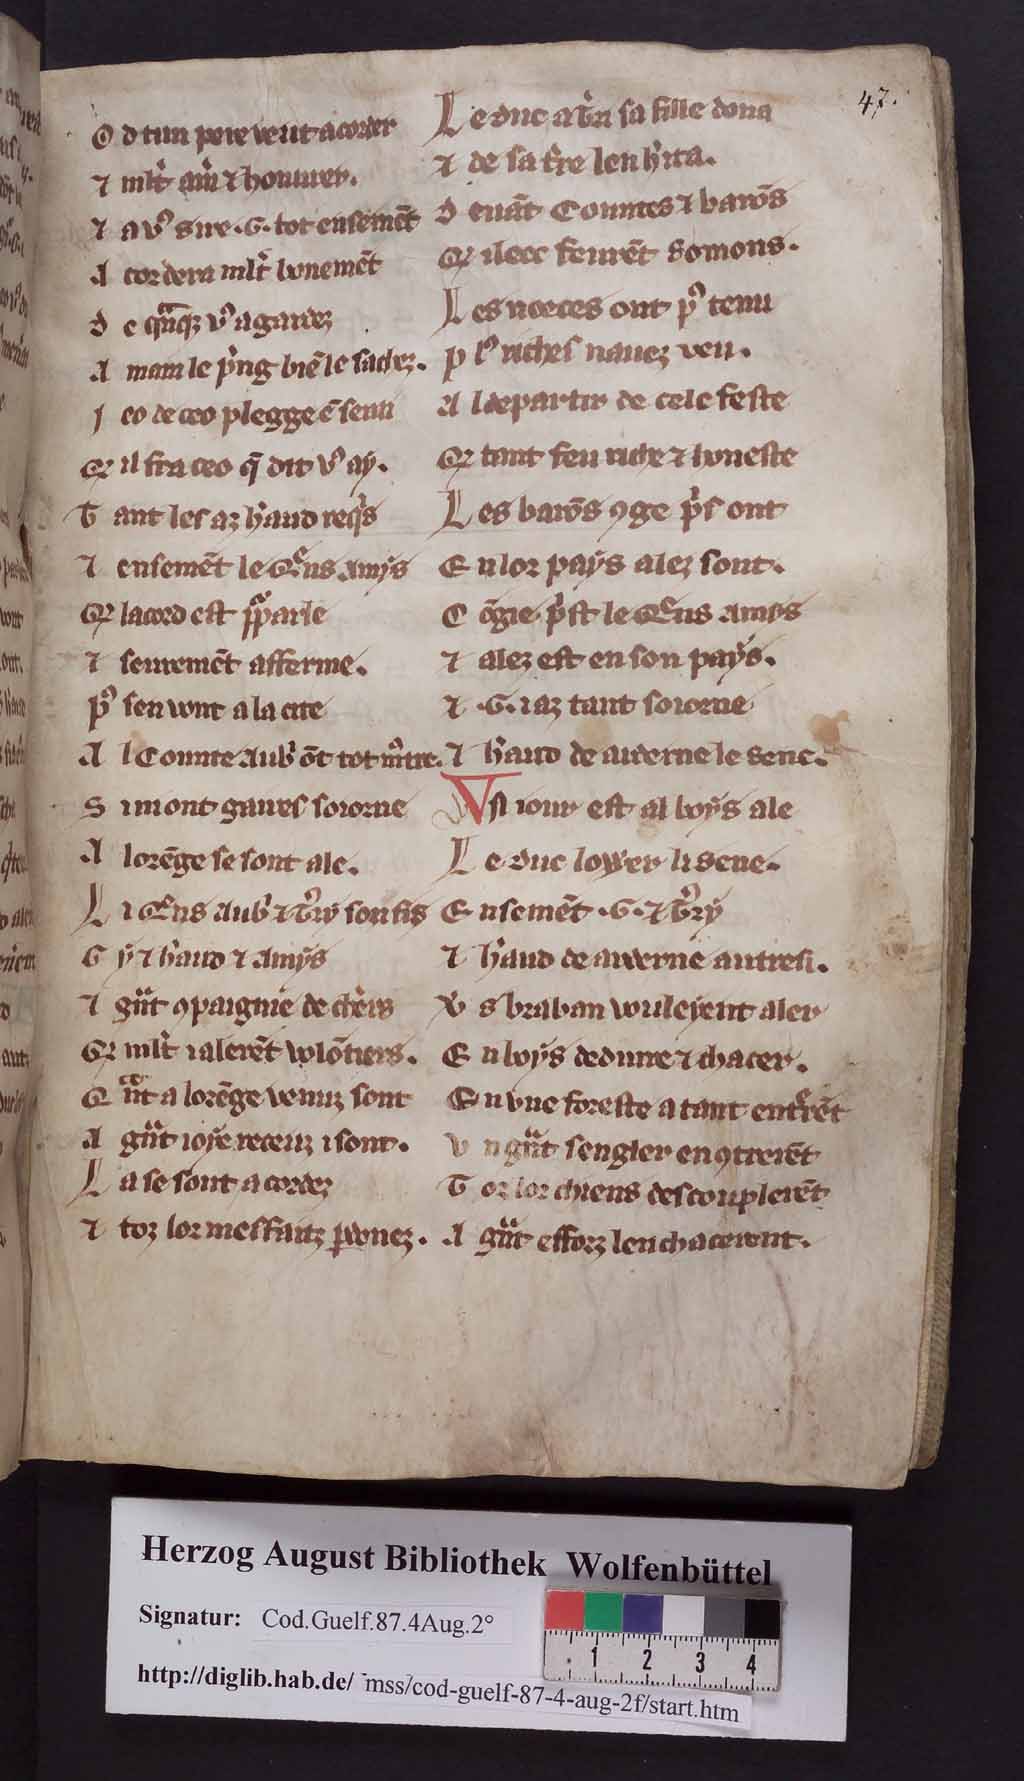 47.
O d tun pere veut acorder
⁊ mlt̃ am̃ ⁊ honurer.
⁊ a vꝰ sire .G. tot ensemẽt
A cordera mlt̃ bonemẽt
D e qᵃnq; vꝰ agardez
A main le p̃ng biẽ le sachez.
J eo de ceo plegge
Q̃ il fra ceo q̃ dit vꝰ ay.
T ant les az h̃aud req̃s
⁊ ensemẽt le Q̃ns Amys
Q̃ lacord est
⁊ seuremẽt afferme.
pꝰ sen vont a la cite
A l Counte Aub̃ õt tot
S imont gaues soiorne
A lorẽge se sont ale.
L i Q̃ns Aub̃ ⁊ T̃ry son fis
G ẏ ⁊ h̃aud ⁊ Amẏs
⁊ gᵃnt ꝯpaignie de ch̃ers
Q̃ mlt̃ i alerẽt volõters.
Q ᵃnt a lorẽge venuz sont
A gᵃnt ioẏe receuz i sont.
L a se sont acordez
⁊ toz lor meffaitz ꝑdonez.
L e duc a G̃ sa fille dona
⁊ de sa t̃re len h̃ita.
D euãt Countes ⁊ barõs
Q̃ ilecc feurẽt somons.
L es noeces ont pꝰ tenu
p lꝰ riches nauez veu.
A l departir de cele feste
Q̃ tant feu riche ⁊ honeste
L es barõs ꝯge p̃s ont
E n lor paẏs alez sont.
C õgie p̃st le Q̃ns Amys
⁊ alez est en son paẏs.
⁊ .G. i az tant soiorne
⁊ h̃aud de arderne le sene.
V N iour est al boẏs ale
L e duc lower li sene.
E nsemẽt .G. ⁊ T̃rẏ
⁊ h̃aud de arderne autresi.
V̾ s braban vuleẏent aler
E n boẏs dedurre ⁊ chacer.
E n vne foreste a tant ent̃rẽt
V n gᵃnt sengler enꝯtrerẽt
T oz lor chiens descouplerẽt
A gᵃnt efforz len chacerent.
Herzog August Bibliothek Wolfenbüttel
Signatur: Cod.Guelf.87.4Aug.2°
1 2 3 4
http://diglib.hab.de/ mss/cod-guelf-87-4-aug-2f/start.htm